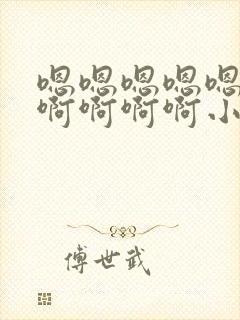 嗯嗯嗯嗯嗯
啊啊啊啊小
傅世武